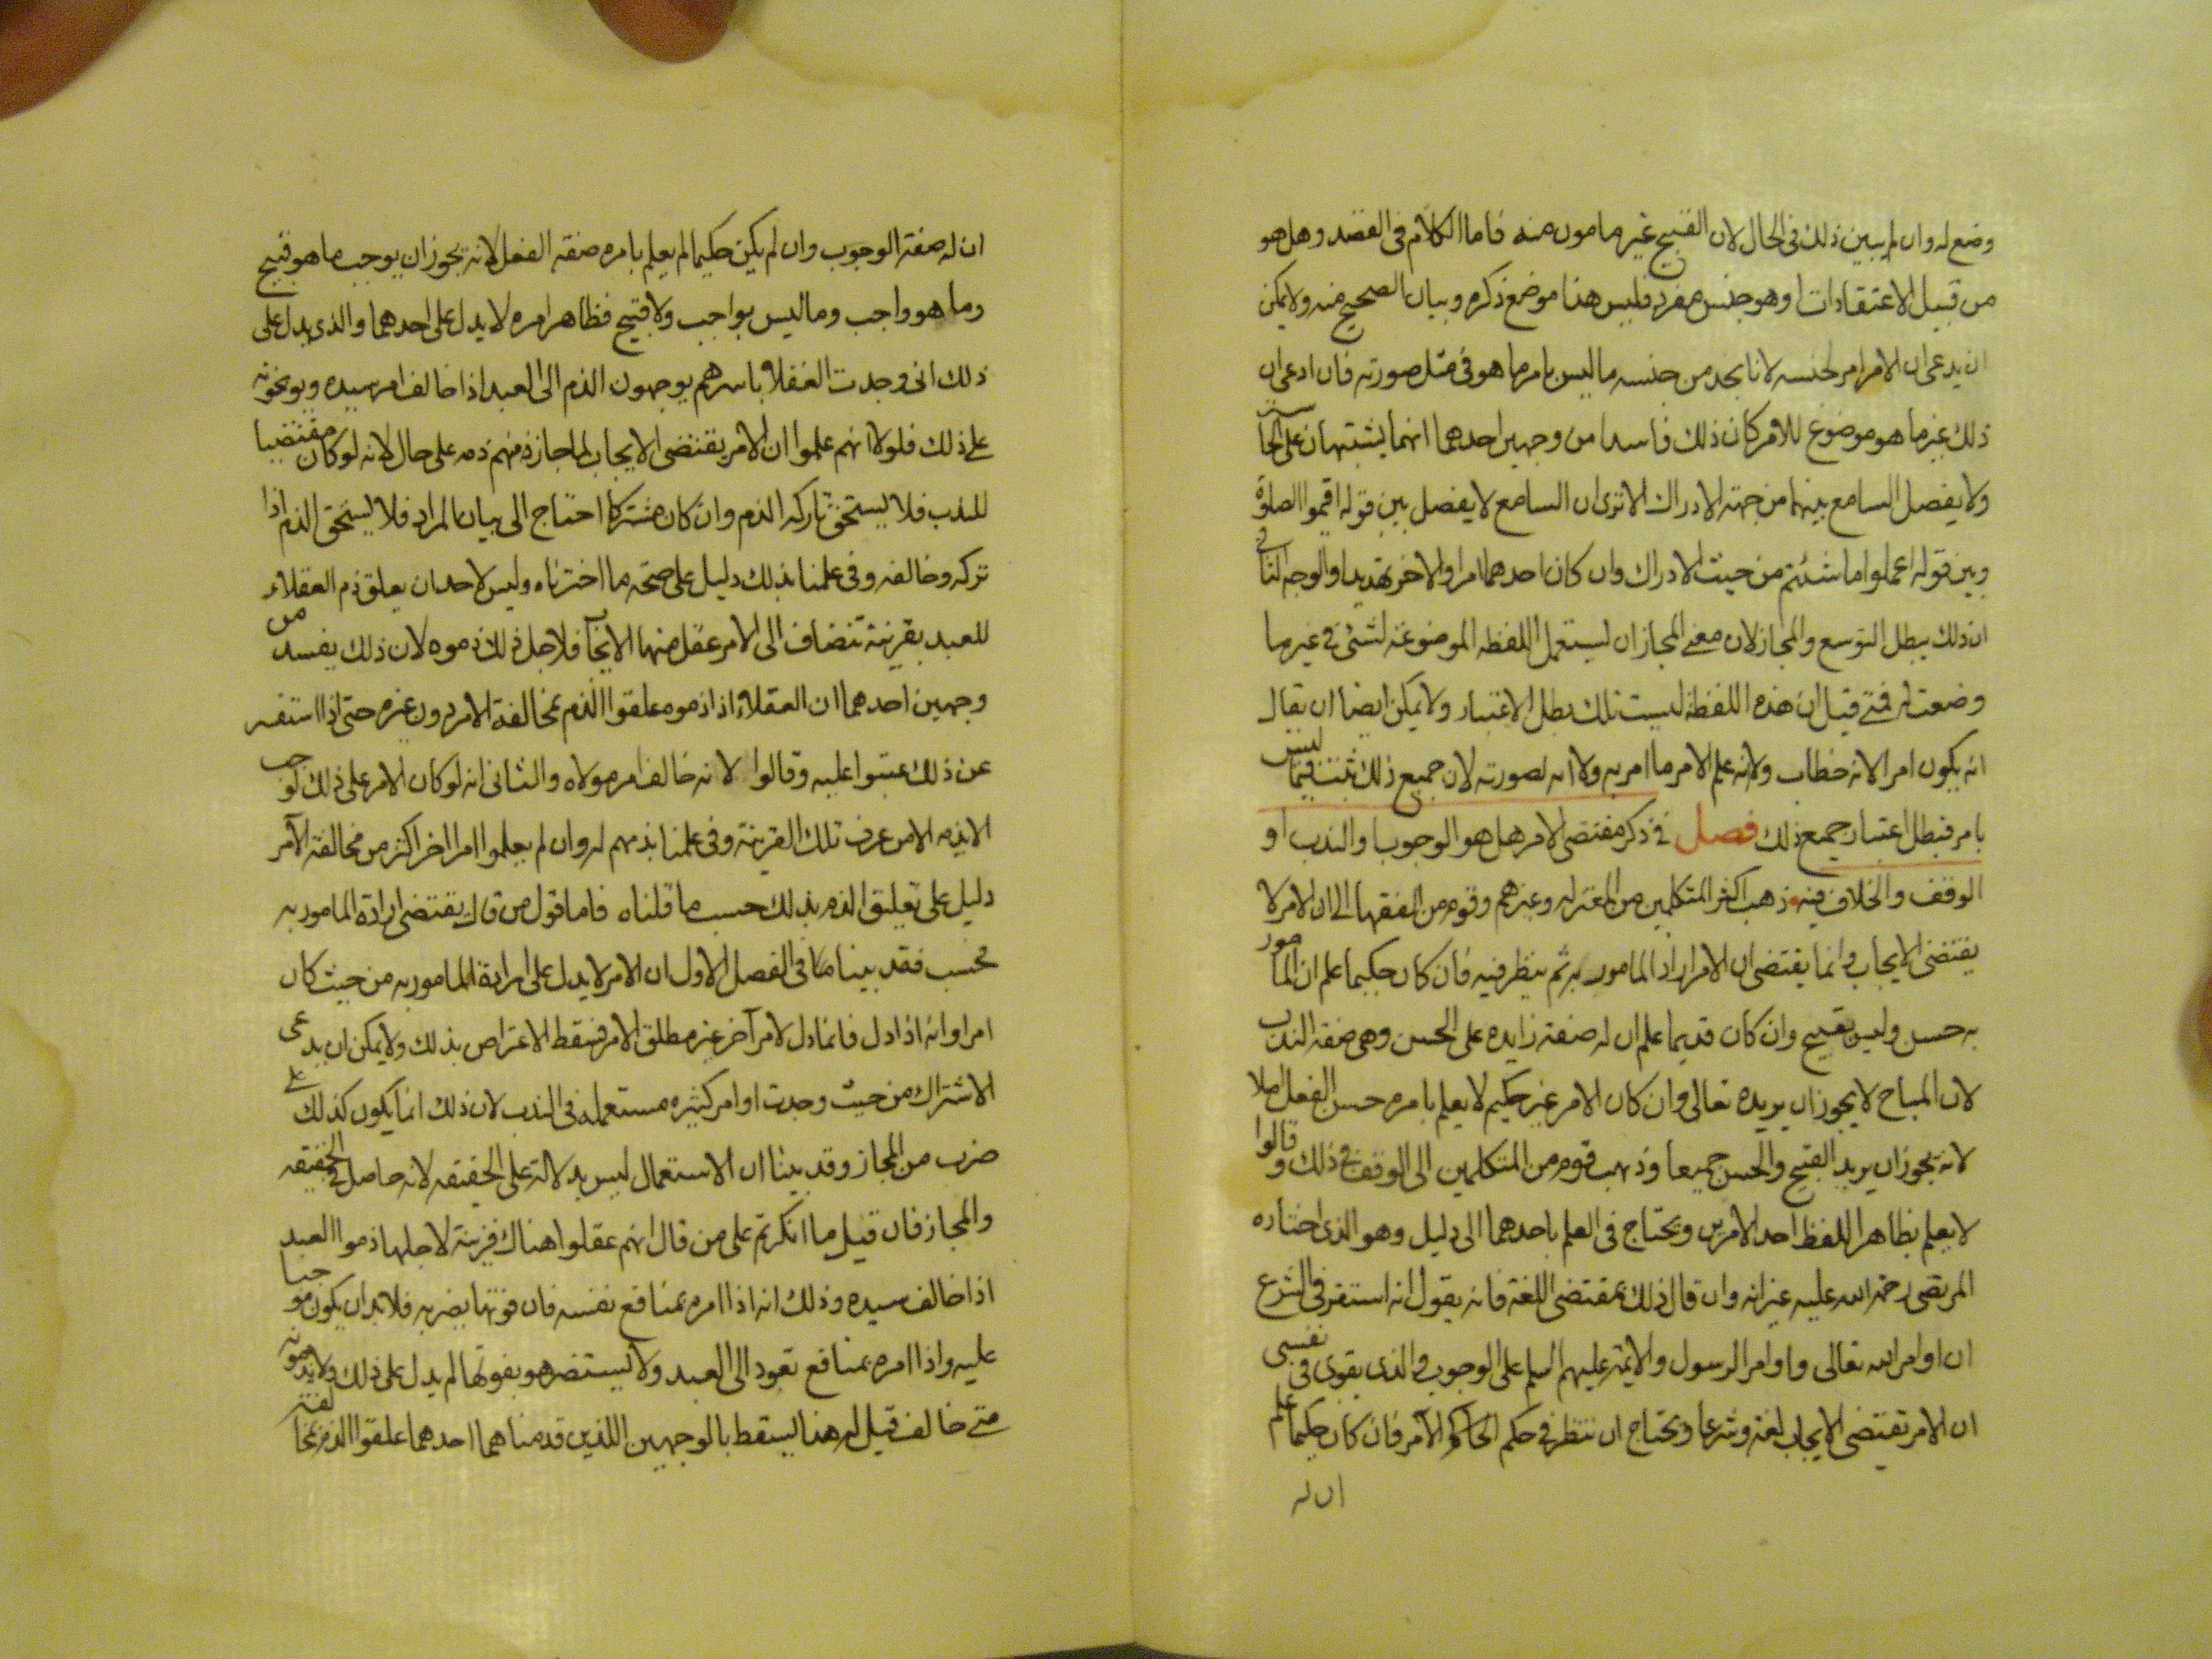 وضع له وان لم يبين ذلك في الحال لان القبيح غير مامون منه فاما الكلام في القصد وهل هو
من قبيل الاعتقادات او هو جنس مفرد فليس هذا موضع ذكره وبيان الصحيح منه ولا يمكن
ان يدعى ان الامر امر لجنسه لانا نجد من جنسه ما ليس بامر ما هو في مثل صورته فان ادعى ان
ذلك غير ما هو موضوع للامر كان ذلك فاسدا من وجهين احدهما انهما يشتبهان على الحا سة
ولا يفصل السامع بينهما من جهة الادراك الا ترى ان السامع لا يفصل بين قوله اقيموا الصلوة
وبين قوله اعملوا ما شئتم من حيث الادراك وان كان احدهما امرا والاخر تهديدا والوجه الثاني
ان ذلك يبطل التوسع والمجاز لان معنى المجاز ان يستعمل اللفظه الموضوعة لشئ في غير ما
وضعت له فمتى قيل ان هذه اللفظة ليست تلك بطل الاعتبار ولا يمكن ايضا ان يقال
انه يكون امرا لانه خطاب ولا نه علم الامر ما امر به ولا انه لصورته لان جميع ذلك ثبت فيما ليس
بامر فبطل اعتبار جميع ذلك فصل في ذكر مقتضى الامر هل هو الوجوب او الندب او
الوقف والخلاف فيه ذهب اكثر المتكلمين من المعتزله وغيرهم وقوم من الفقها الى ان الامر لا
يقتضى الايجاب وانما يقتضى ان الامر اراد المامور به ثم ينظر فيه فان كان حكيما علم ان المامور
به حسن وليس بقبيح وان كان قديما علم ان له صفة زايده على الحسن وهى صفة الندب
لان المباح لا يجوز ان يريده تعالى وان كان الامر غير حكيم لا يعلم بامره حسن الفعل اصلا
لانه يجوز ان يريد القبيح والحسن جميعا وذهب قوم من المتكلمين الى الوقف في ذلك وقالوا
لا يعلم بظاهر اللفظ احد الامرين ويحتاج في العلم باحدهما الى دليل وهو الذى اختاره
المرتضى رحمة الله عليه غير انه وان قال ذلك بمقتضى اللغة فانه يقول انه استقر في الشرع
ان اوامر الله تعالى واوامر الرسول والائمة عليهم السلم على الوجوب والذى يقوى في نفسى
ان الامر تقتضى الايجاب لغة وشرعا ويحتاج ان ننظر في حكم الآمر فان كان حكيما علم
ان له
ان له صفة الوجوب وان لم يكن حكيما لم يعلم بامره صفة الفعل لانه يجوز ان يوجب ما هو قبيح
وما هو واجب وما ليس بواجب ولا قبيح فظاهر امره لا يدل على احدهما والذى يدل على
ذلك انى وجدت العقلا باسرهم يوجهون الذم الى العبد اذا خالف امر سيده ويوبخونه
على ذلك فلولا انهم علموا ان الامر يقتضى الايجاب لما جاز منهم ذمه على حال لانه لو كان مقتضيا
للندب فلا يستحق تاركه الذم وان كان مشتركا احتاج الى بيان المراد فلا يستحق الذم اذا
تركه وخالفه وفي علمنا بذلك دليل على صحة ما اخترناه وليس لاحد ان يعلق ذم العقلاء
للعبد بقرينة تنضاف الى الامر عقل منها الايجاب فلاجل ذلك ذموه لان ذلك يفسد من
وجهين احدهما ان العقلاء اذا ذموه علقوا الذم بمخالفة الامر دون غيره حتى اذا استفسر
عن ذلك عتبوا عليه وقالوا لانه خالف امر مولاه والثانى انه لو كان الامر على ذلك لوجب
الا يذمه الا من عرف تلك القرينة وفي علمنا بذمهم له وان لم يعلموا امرا اخر اكثر من مخالفة الآمر
دليل على تعليق الذم بذلك حسب ما قلناه فاما قول من قال يقتضى ارادة المامور به
فحسب فقد بينا في الفصل الاول ان الامر لا يدل على ارادة المامور به من حيث كان
امرا وانه اذا دل فانما دل لامر آخر غير مطلق الامر فسقط الاعتراض بذلك ولا يمكن ان يدعى
الاشتراك من حيث وجدت اوامر كثيره مستعمله في الندب لان ذلك انما يكون كذلك على
ضرب من المجاز وقد بينا ان الاستعمال ليس بدلالة على الحقيقه لانه حاصل في الحقيقه
والمجاز فان قيل ما انكرتم على من قال انهم عقلوا هناك قرينة لاجلها ذموا العبد
اذا خالف سيده وذلك انه اذا امره بمنافع نفسه فان فوتها يضر به فلا بد ان يكون موجبا
عليه واذا امره بمنافع تعود الى العبد ولا يستضر هو بفوتها لم يدل على ذلك ولا يذمونه
متى خالف قيل له هذا يسقط بالوجهين اللذين قدمنا هما احدهما علقوا الذم بمخالفته